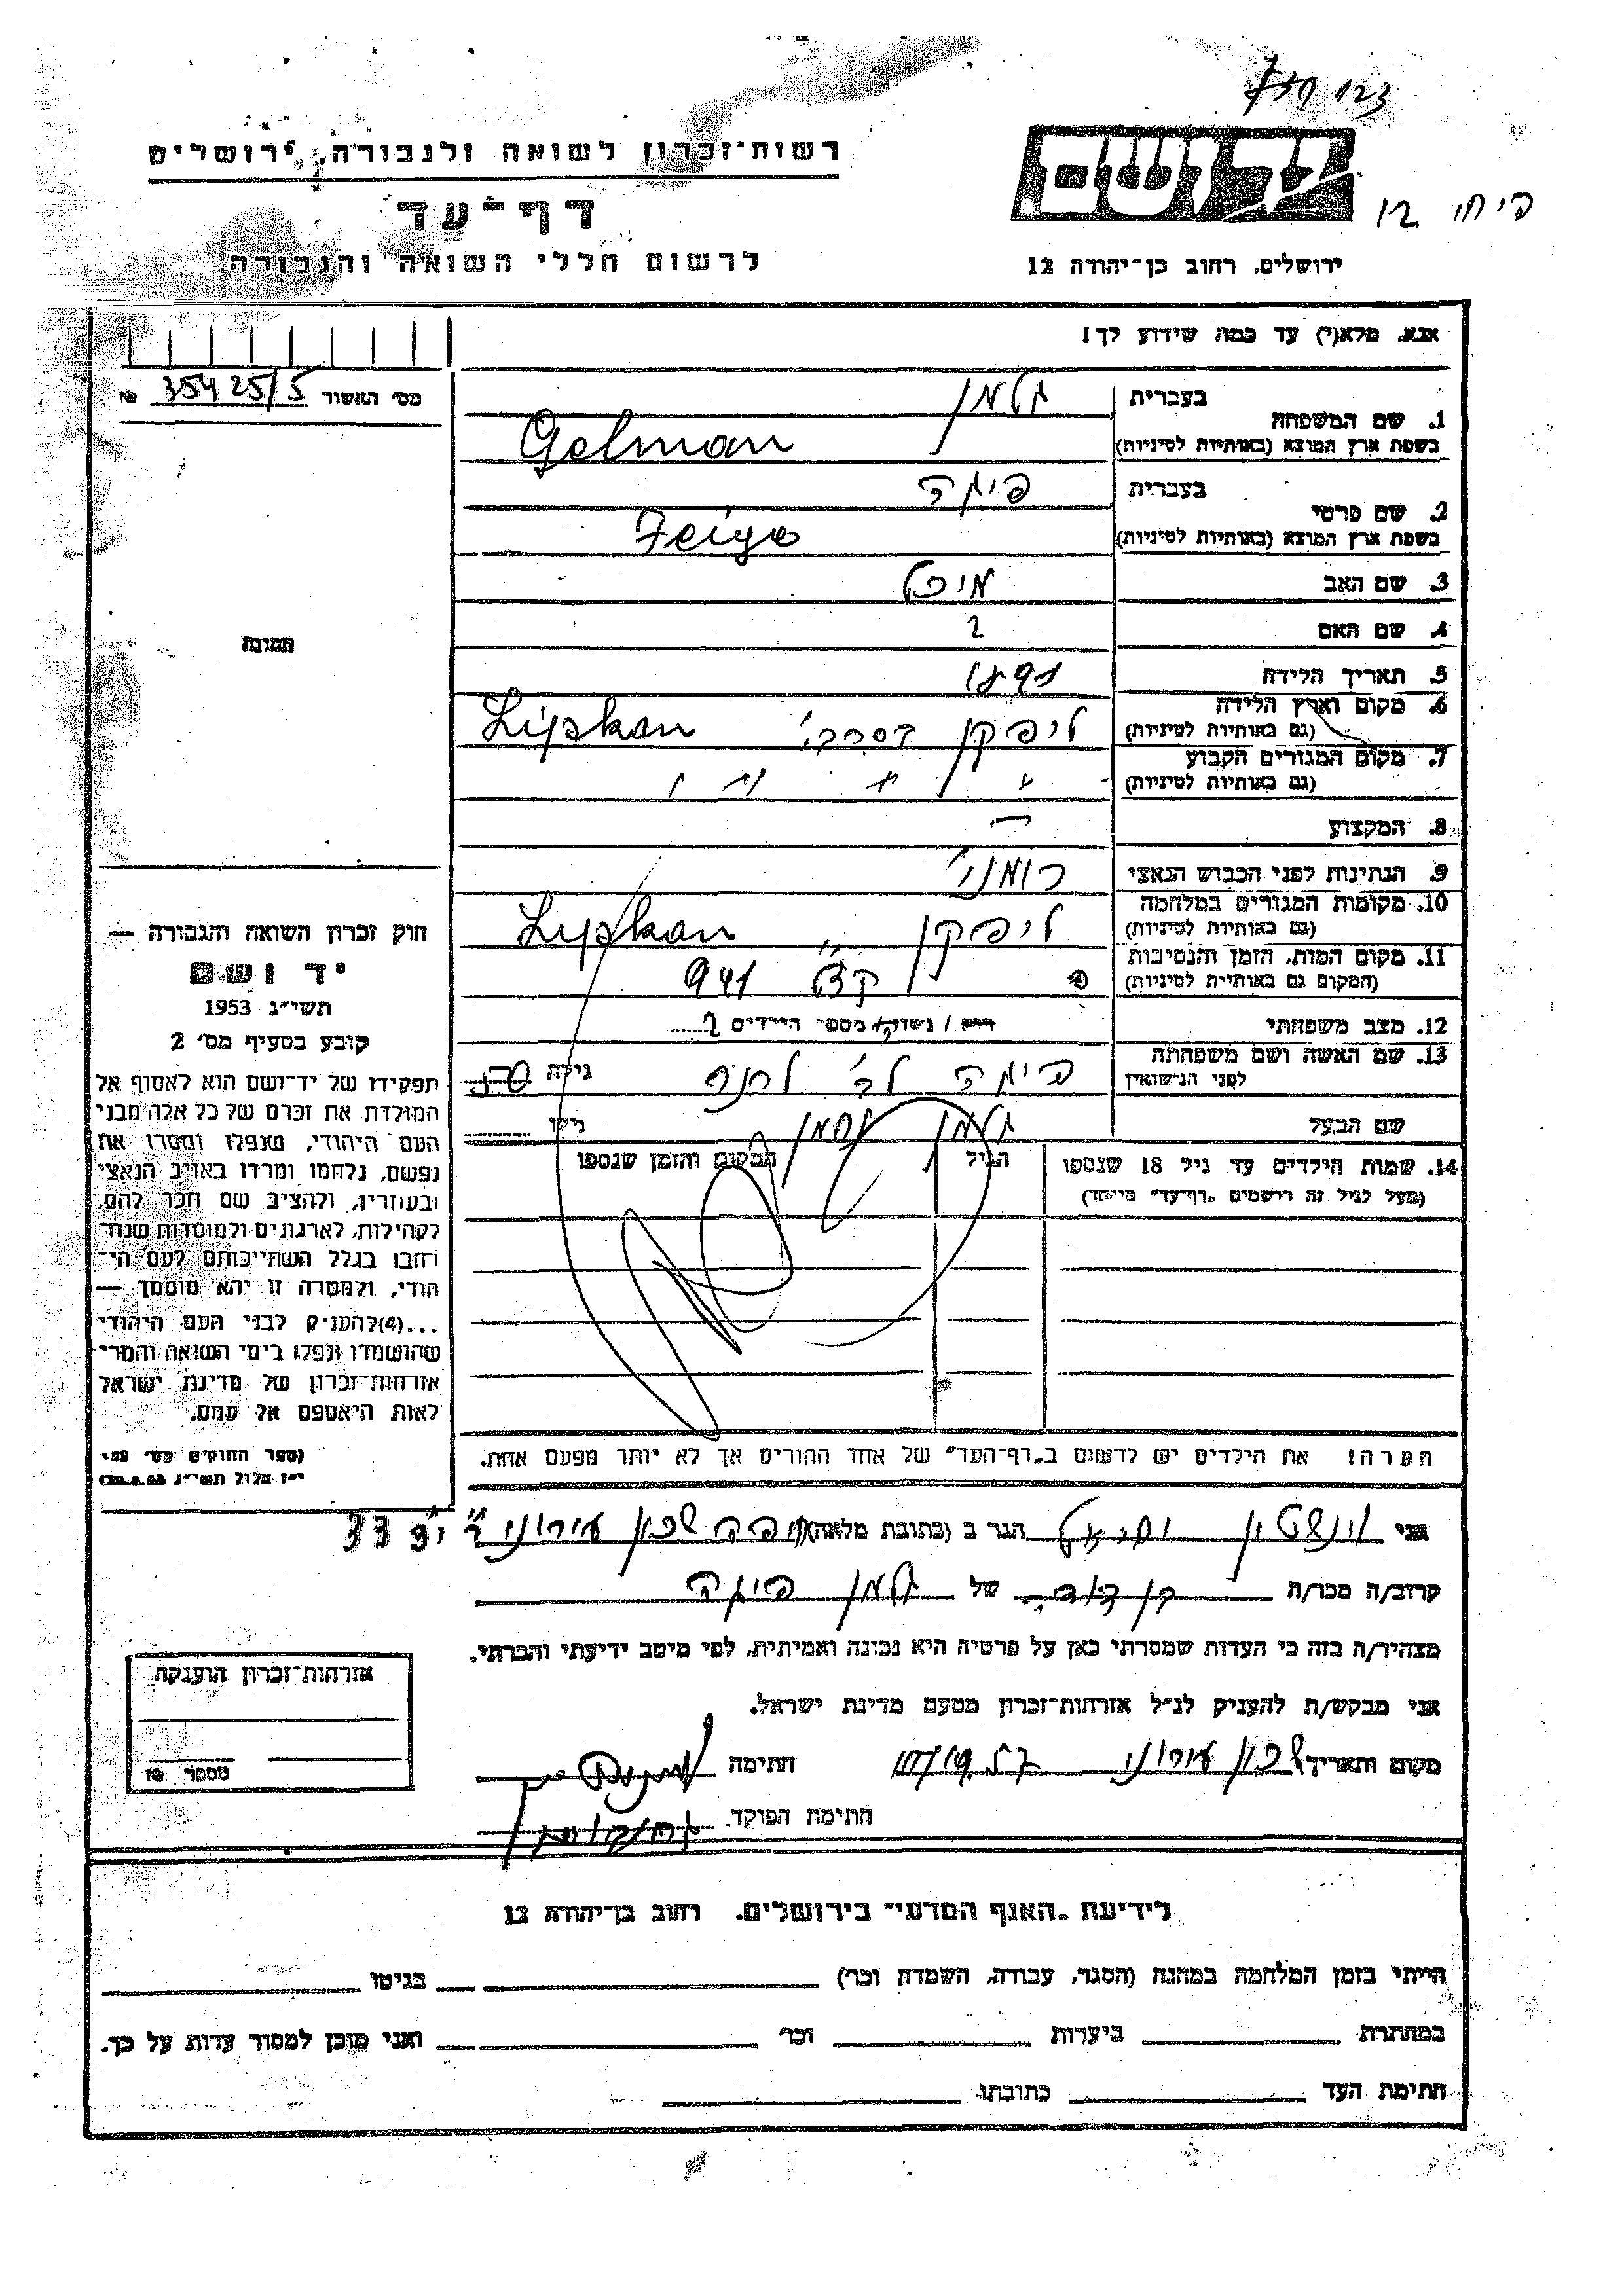 123
רשות־זכרון לשואה ולגבורה, ירושלים
דף־עד
לרשום חללי השואה והגבורה
ירושלים, רחוב בן־יהודה 12
12
אנא, מלא(י) עד כמה שידוע לך!
מס׳ האשור 35425/5 №
1. שם המשפחה
בעברית
גלמן
בשפת ארץ המוצא (באותיות לטיניות)
Gelman
2. שם פרטי
בעברית
פיגה
בשפת ארץ המוצא (באותיות לטיניות)
Feiga
3. שם האב
מיכל
4. שם האם
?
5. תאריך הלידה
1891
6. מקום וארץ הלידה
(גם באותיות לטיניות)
ליפקן בסרבי׳ Lipkan
7. מקום המגורים הקבוע
(גם באותיות לטיניות)
8. המקצוע
—
9. הנתינות לפני הכבוש הנאצי
רומני׳
10. מקומות המגורים במלחמה
(גם באותיות לטיניות)
ליפקן Lipkan
11. מקום המות, הזמן והנסיבות
(המקום גם באותיות לטיניות)
941
12. מצב משפחתי
רוק / נשוק׳ מספר הילדים 2
13. שם האשה ושם משפחתה
לפני הנישואין
פיגה לב׳
גילה
שם הבעל
גלמן נחמן
גילו
14. שמות הילדים עד גיל 18 שנספו
(מעל לגיל זה רושמים „דף־עד״ מיוחד)
הגיל
המקום והזמן שנספו
הערה: את הילדים יש לרשום ב„דף־העד״ של אחד ההורים אך לא יותר מפעם אחת.
תמונה
חוק זכרון השואה והגבורה —
יד ושם
תשי״ג 1953
קובע בסעיף מס׳ 2
תפקידו של יד־ושם הוא לאסוף אל
המולדת את זכרם של כל אלה מבני
העם היהודי, שנפלו ומסרו את
נפשם, נלחמו ומרדו באויב הנאצי
ובעוזריו, ולהציב שם וזכר להם,
לקהילות, לארגונים ולמוסדות שנח־
רבו בגלל השתייכותם לעם הי־
הודי, ולמטרה זו יהא מוסמך —
...(4) להעניק לבני העם היהודי
שהושמדו ונפלו בימי השואה והמרי
אזרחות־זכרון של מדינת ישראל
לאות היאספם אל עמם.
(ספר החוקים מס׳ 132,
י״ז אלול תשי״ג 28.8.53)
אני הגר ב (כתובת מלאה) חיפה שכון עירוני 33
קרוב/ה מכר/ה בן דוד של גלמן פיגה
מצהיר/ה בזה כי העדות שמסרתי כאן על פרטיה היא נכונה ואמיתית, לפי מיטב ידיעתי והכרתי.
אני מבקש/ת להעניק לנ״ל אזרחות־זכרון מטעם מדינת ישראל.
מקום ותאריך שכון עירוני חתימה
חתימת הפוקד
אזרחות־זכרון הוענקה
מספר №
לידיעת „האגף המדעי״ בירושלים, רחוב בן־יהודה 12
הייתי בזמן המלחמה במחנה (הסגר, עבודה, השמדה וכר׳) בגיטו
במחתרת ביערות וכר׳ ואני מוכן למסור עדות על כך.
חתימת העד כתובתו